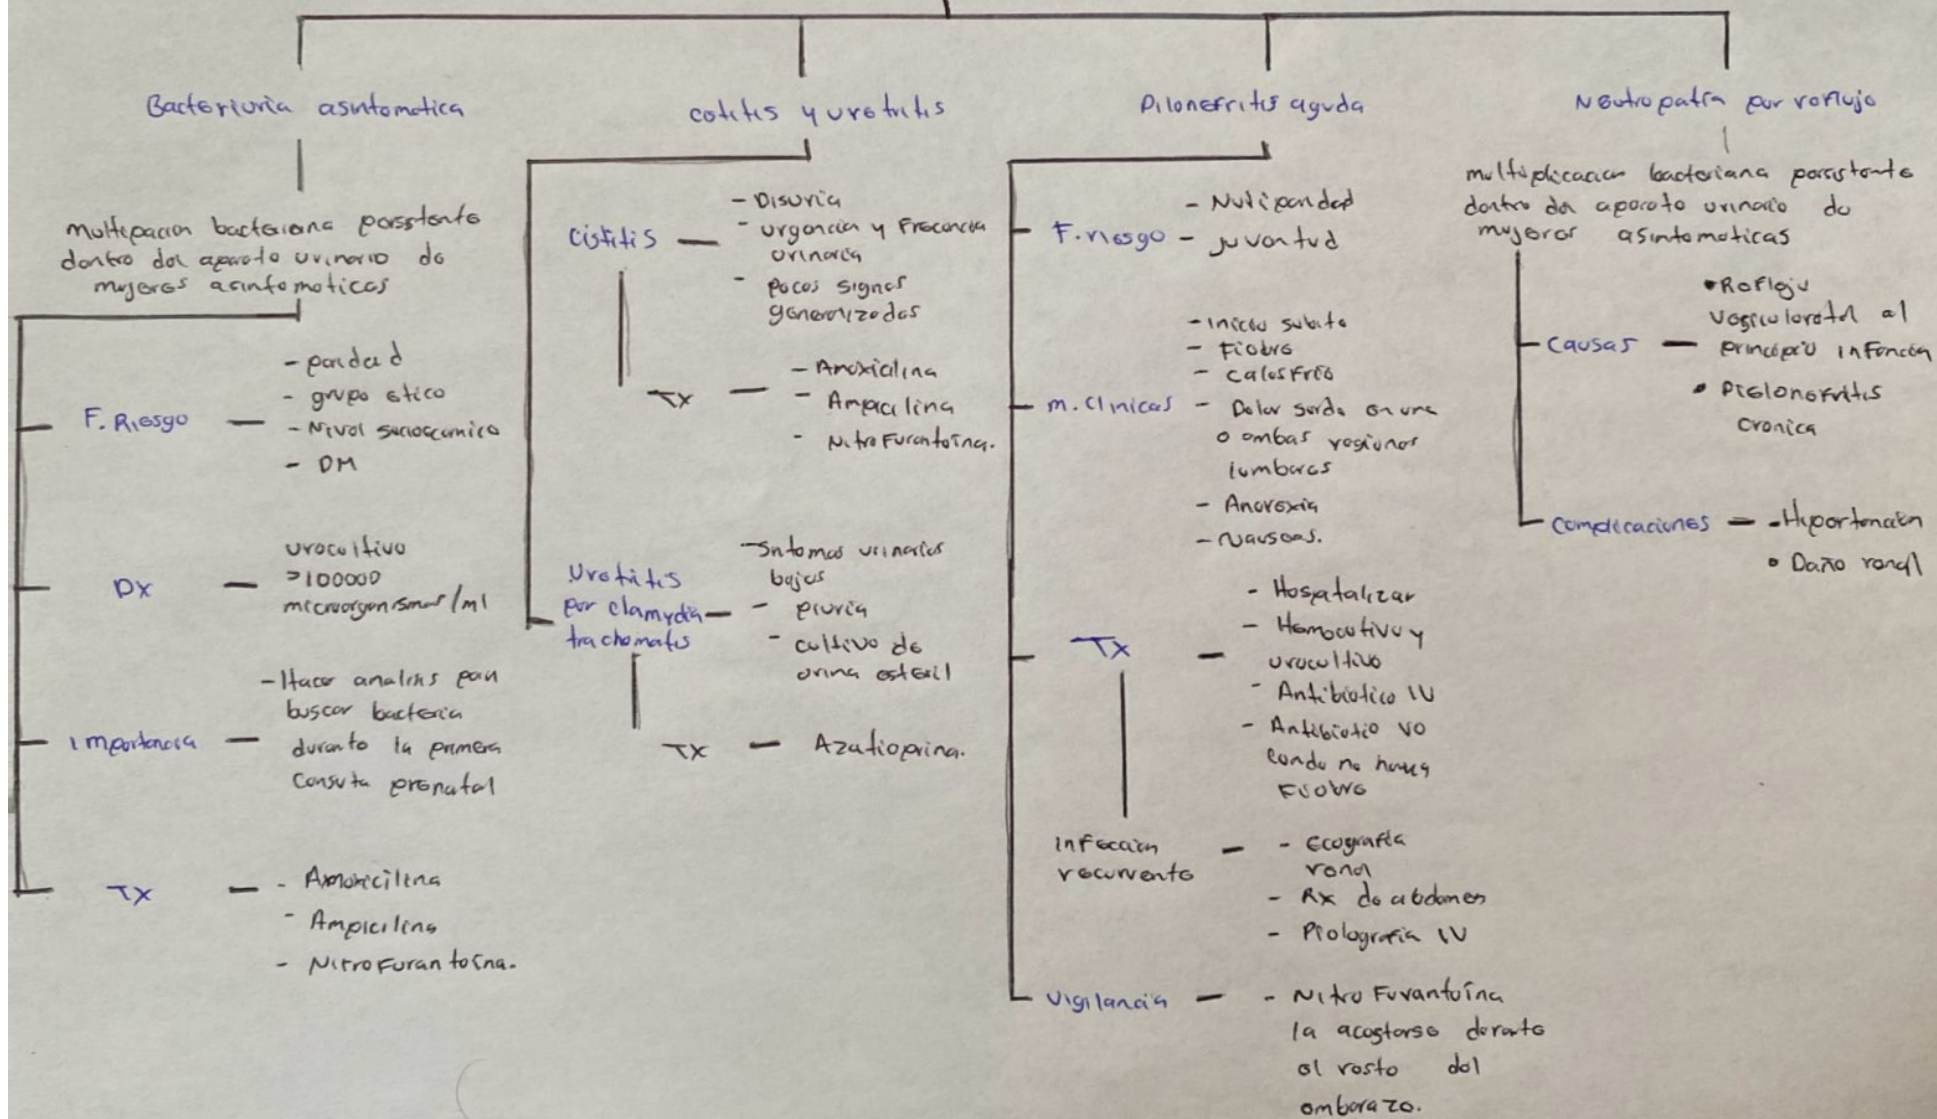 Bacteriuria asintomatica
multipacion bacteriana persstente
dentro del aparato urinario de
mujeres asintomaticas
F. Riesgo
- paridad
- grupo etico
- Nivel socioecomico
- DM
DX
urocultivo
>100000
microorganismos/ml
Importancia
- Hacer analisis para
buscar bacteria
durante la primera
consuta prenatal
TX
- Amoxicilina
- Ampicilina
- Nitrofurantoína.
cotitis y uretritis
Cistitis
- Disuria
- urgencia y frecuencia
urinaria
- pocos signos
generalizados
TX
- Amoxicilina
- Ampicilina
- Nitrofurantoína.
Uretritis
por clamydia
trachomatis
- Sntomas urinarios
bajos
- piuria
- cultivo de
orina esteril
TX
Azatioprina.
Pilonefritis aguda
F. riesgo
- Nuliparidad
- juventud
m. Clinicas
- inicio subito
- Fiebre
- calosfrio
- Dolor sordo en una
o ambas regiones
lumbares
- Anorexia
- Nauseas.
TX
- Hospitalizar
- Hemocutivo y
urocultivo
- Antibiotico IV
- Antibiotio VO
cando no haya
Fiebre
Infeccion
recurrente
- Ecografia
renal
- Rx de abdomen
- Pielografia IV
Vigilancia
- Nitrofurantoína
la acostarse durante
el resto del
embarazo.
Neutropatía por reflujo
multiplicacion bacteriana persistente
dentro del aparato urinario de
mujeres asintomaticas
Causas
• Reflejo
vesicoureteral al
principio infancia
• Pielonefritis
cronica
Complicaciones
• Hipertencion
• Daño renal